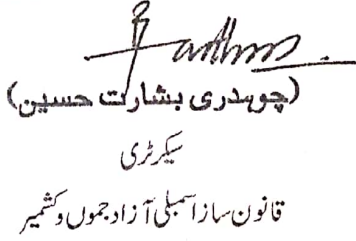 (چوہدری بشارت حسین)
سیکرٹری
قانون ساز اسمبلی آزاد جموں و کشمیر